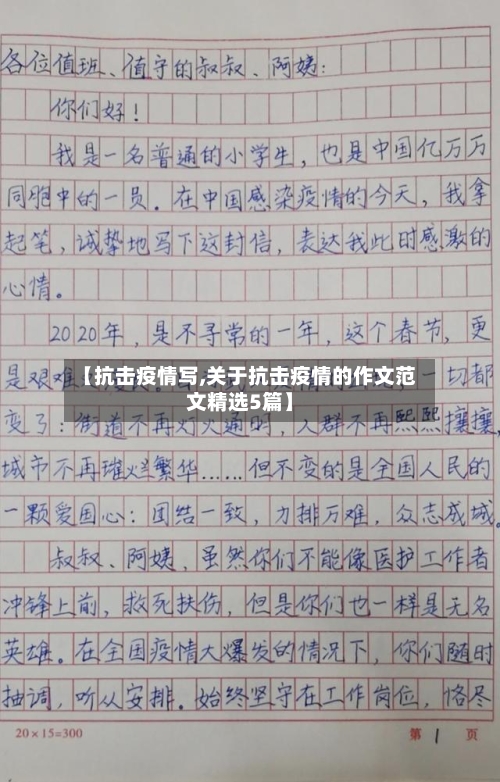 各位值班、值守的叔叔、阿姨：
你们好！
我是一名普通的小学生，也是中国亿万万
同胞中的一员。在中国感染疫情的今天，我拿
起笔，诚挚地写下这封信，表达我此时感激的
心情。
2020年，是不寻常的一年，这个春节，更
是艰难
【抗击疫情写,关于抗击疫情的作文范
文精选5篇】
一切都
变了：街道不再灯火通明，人群不再熙熙攘攘，
城市不再璀灿繁华……但不变的是全国人民的
一颗爱国心：团结一致，力排万难，众志成城。
叔叔、阿姨，虽然你们不能像医护工作者
冲锋上前，救死扶伤，但是你们也一样是无名
英雄。在全国疫情大爆发的情况下，你们随时
抽调，听从安排。始终坚守在工作岗位，恪尽
20×15=300
第 1 页